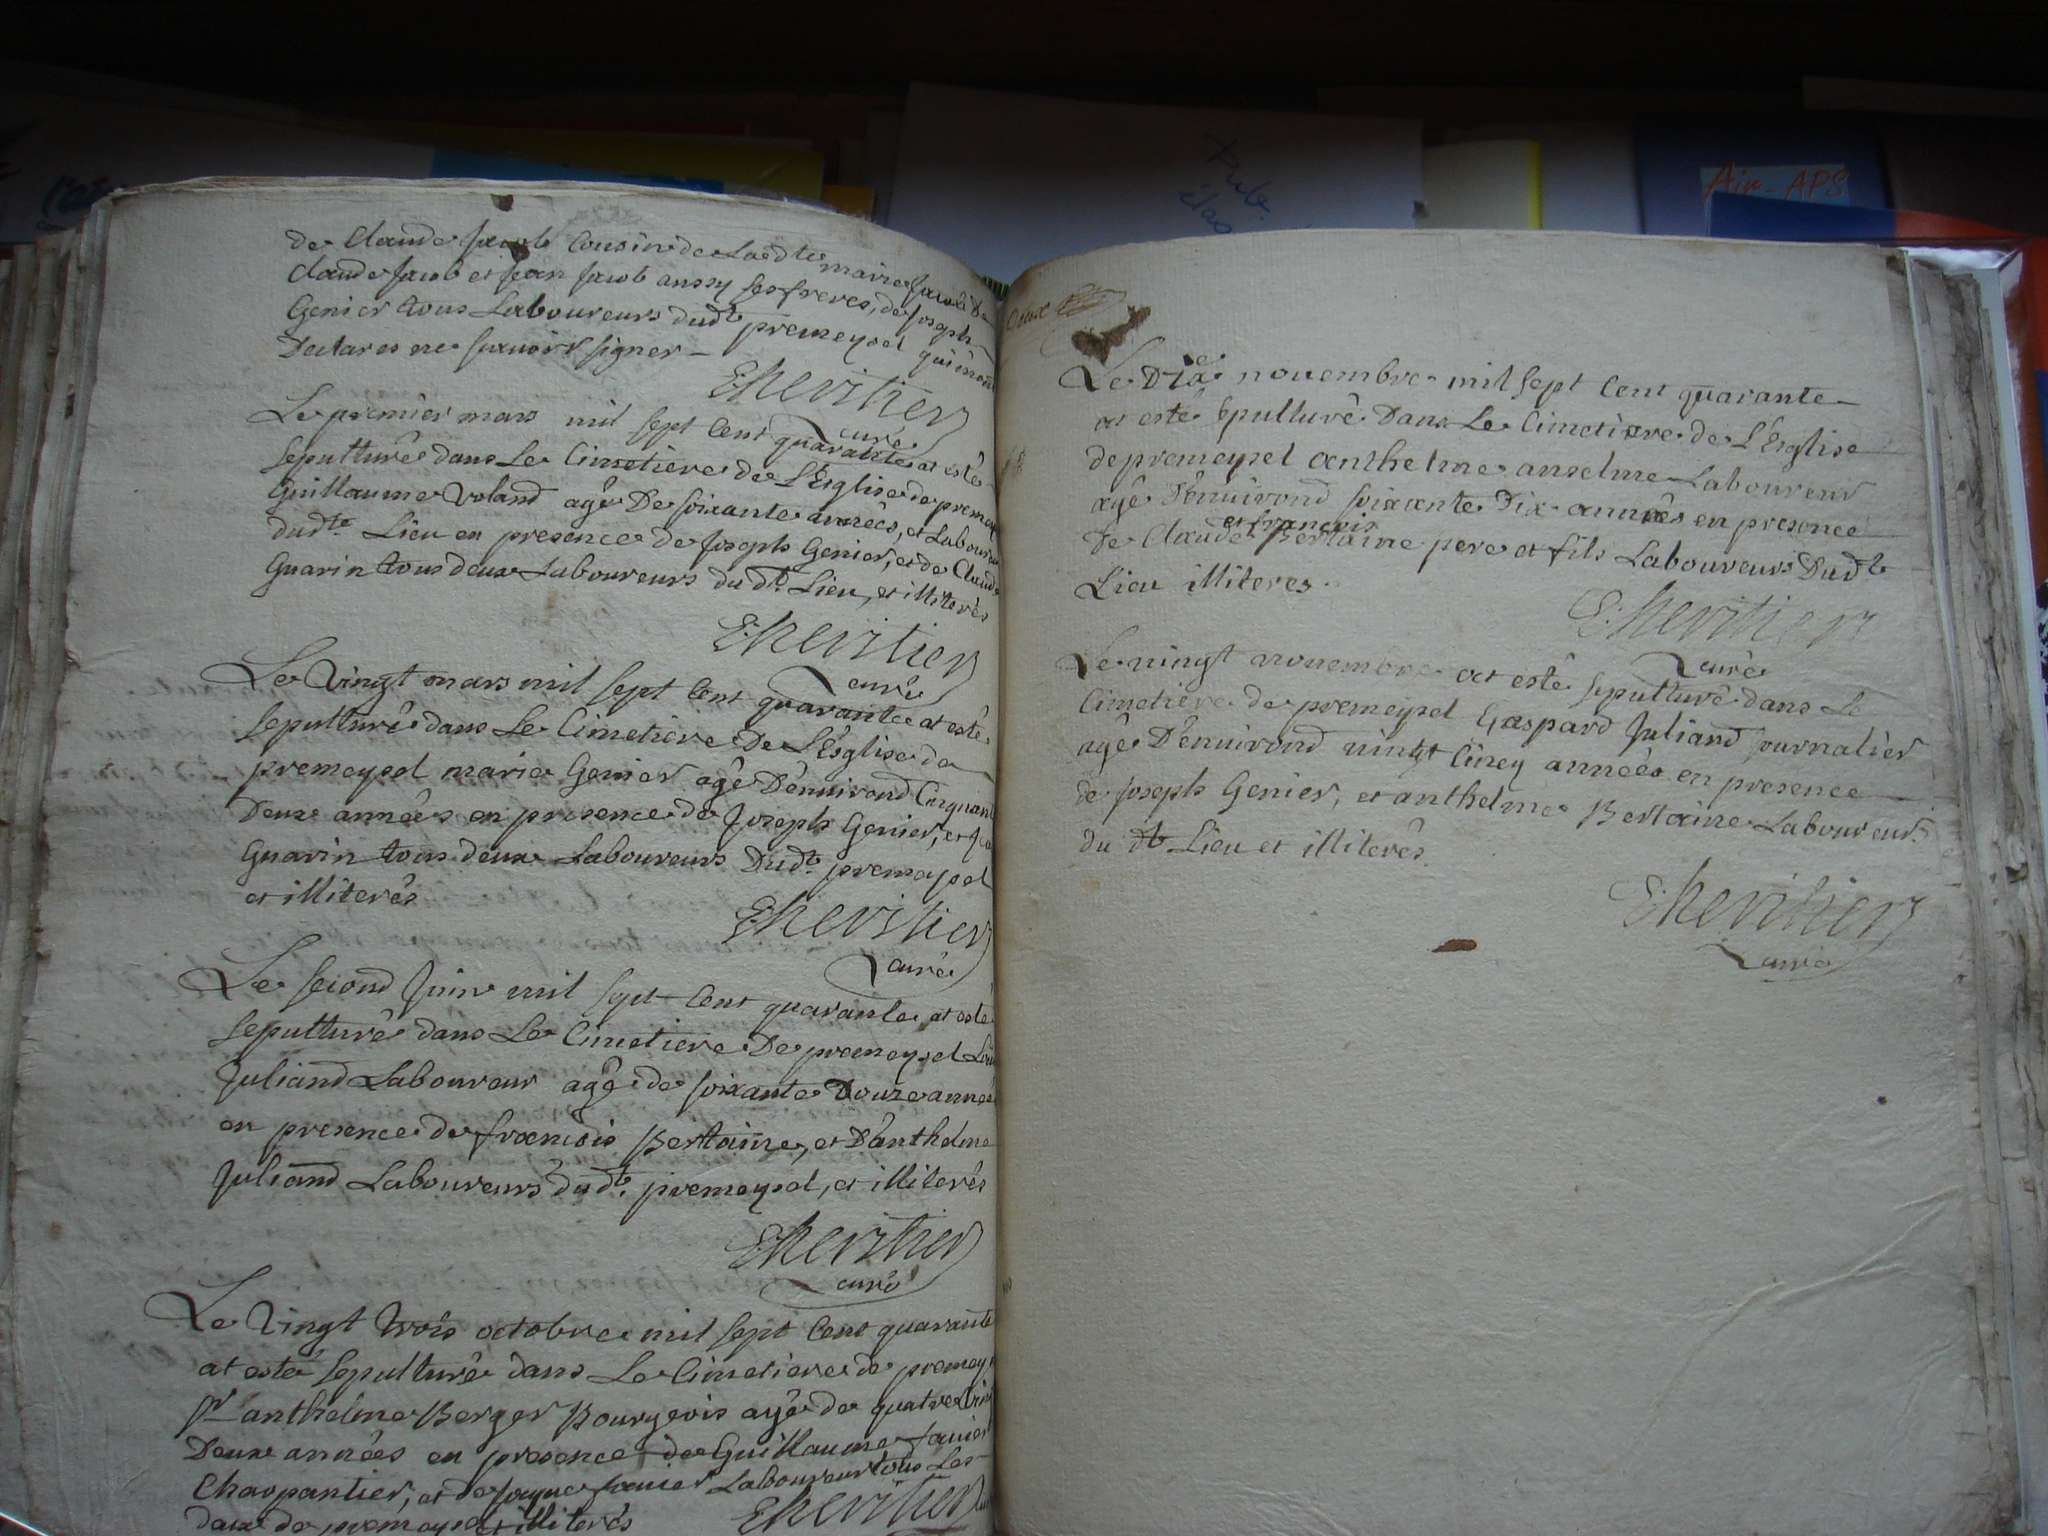 de Claude Jacob Cousin de Ladte marie Jacob De
Claude Jacob et jean Jacob aussy ses freres, de joseph
Genier tous Laboureurs dudt premeyzel qui mont
Declares ne scavoir signer
EHeritier
curé
Le premier mars mil sept Cent quarante at esté
sepulturé dans Le Cimetiere de L'Esglise de premey
Guillaume Voland agé De soixante années, et Laboureur
dudt Lieu en presence de Joseph Genier, et de Claude
Guarin tous deux Laboureurs du dt Lieu, et illiterés
EHeritier
curé
Le Vingt mars mil sept Cent quarante at esté
sepulturé dans Le Cimetiere De L'Esglise de
premeyzel marie Genier agé D'enuirond Cinquante
Deux années en presence de Joseph Genier, et
Guarin tous deux Laboureurs Dudt premeyzel
et illiterés
EHeritier
curé
Le second Juin mil sept Cent quarante at esté
sepulturé dans Le Cimetiere De premeyzel
Juliand Laboureur agé de soixante Douze années
en presence de francois Bertaine, et D'anthelme
Juliand Laboureurs dudt premeyzel, et illiterés
EHeritier
curé
Le Vingt trois octobre mil sept Cent quarante
at esté sepulturé dans Le Cimetiere de premey
sr anthelme Berger Bourgeois agé de quatre Vingt
Deux années en presence de Guillaume fauier
Charpantier, et de jaque fauier Laboureur tous Les
deux de premeyzel et illiterés
EHeritier
Le Dixe nouembre mil sept Cent quarante
at esté sepulturé Dans Le Cimetiere de L'Esglise
de premeyzel anthelme anselme Laboureur
agé D'enuirond soixante Dix années en presence
et francois
De Claude Bertaine pere et fils Laboureurs Dudt
Lieu illiteres.
EHeritier
curé
Le vingt nouembre at esté sepulturé dans Le
Cimetiere de premeyzel Gaspard Juliand journalier
agé D'enuirond vingt Cincq années en presence
de Joseph Genier, et anthelme Bertaine Laboureurs
du dt Lieu et illiterés.
EHeritier
curé
Ain-APS